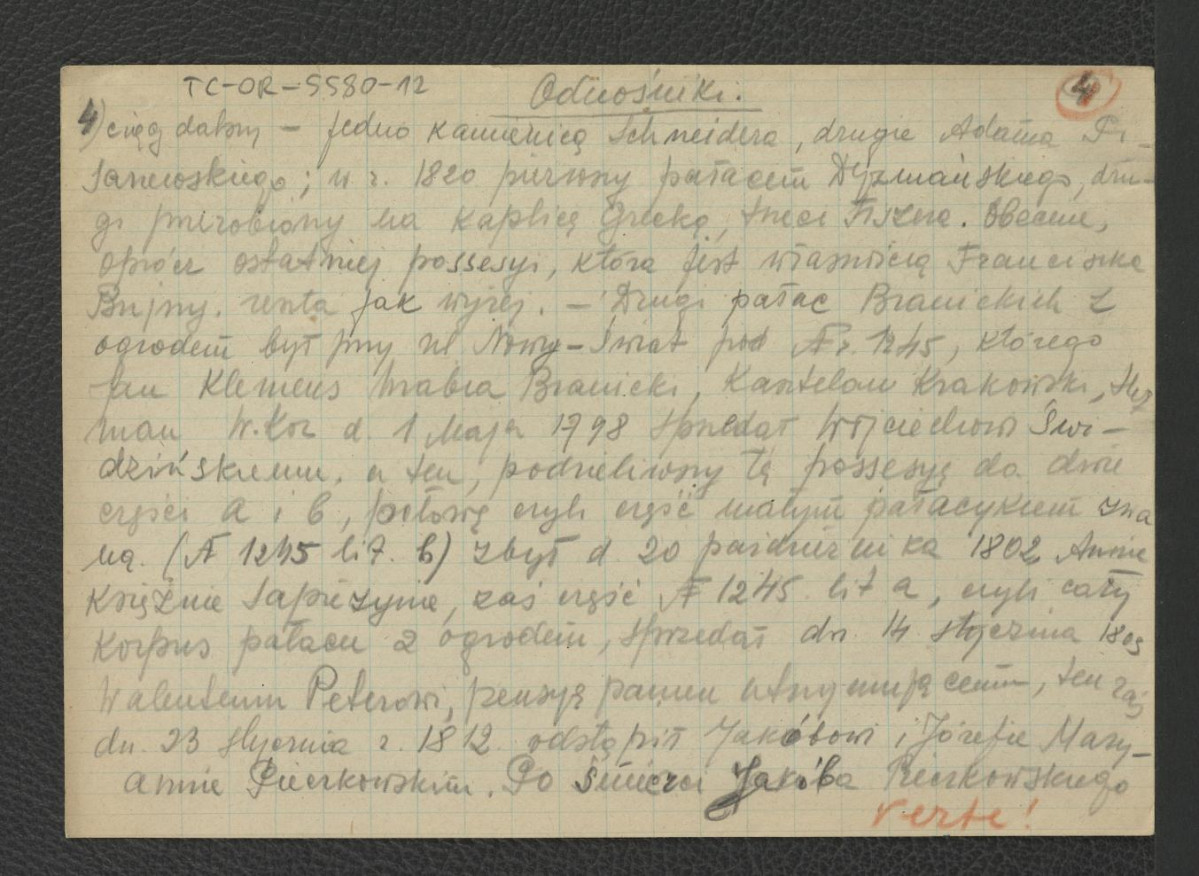 TC-OR-5580-12 Odnośniki. 4
4) ciąg dalszy – jedno kamienicą Schneidera, drugie Adama Pi-
sanowskiego; w r. 1820 pierwszy pałacem Dyzmańskiego, dru-
gi przerobiony na kaplicę Grecką, trzeci Fiszera. Obecnie,
oprócz ostatniej possesyi, która jest własnością Franciszka
Bujny. reszta jak wyżej. – Drugi pałac Branickich z
ogrodem był przy ul Nowy-Świat pod Nr. 1245, którego
Jan Klemens hrabia Branicki, Kasztelan Krakowski, Het
man W. Kor d. 1 Maja 1798 sprzedał Wojciechowi Świ-
dzińskiemu, a ten, podzieliwszy tą possesyę na dwie
części a i b, połowę czyli część małym pałacykiem zwa
ną. (N 1245 lit. b) zbył d. 20 października 1802 Annie
Księżnie Sapieżynie, zaś część N 1245 lit a, czyli cały
korpus pałacu z ogrodem, sprzedał dn. 14 stycznia 1805
Walentemu Peterowi, pensyą panien utrzymującemu, ten zaś
dn. 23 stycznia r. 1812 odstąpił Jakóbowi i Józefie Mary-
annie Pieczkowskim. Po śmierci Jakóba Pieczkowskiego
verte!